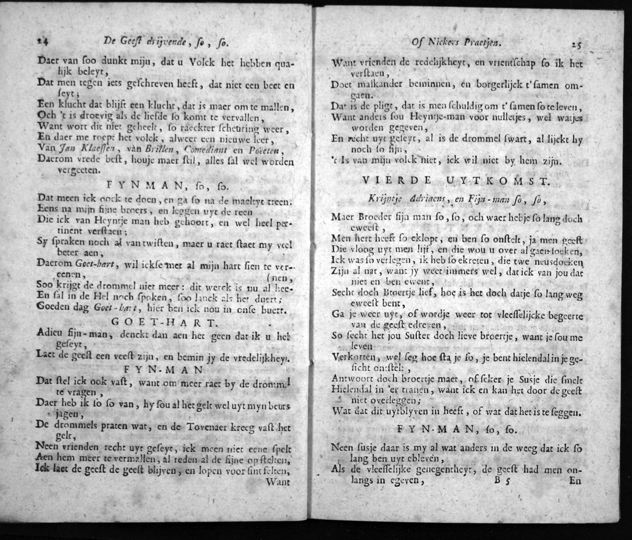 24 De Geest drijvende, so, so.
Daer van soo dunkt mijn, dat u Volck het hebben qua-
lijk beleyt,
Dat men tegen iets geschreven heeft, dat niet een beet en
seyt;
Een klucht dat blijft een klucht, dat is maer om te mallen,
Och 't is droevig als de liefde so komt te vervallen,
Want wort die niet geheelt, so raeckter scheuring weer,
En daer me roept het volck, alweer een nieuwe leer,
Van Jan Klaessen, van Brillen, Comediant en Poeten,
Daerom vrede best, houje maer stil, alles sal wel worden
vergeeten.
FYNMAN, so, so.
Dat meen ick oock te doen, en ga so na de maeltyt treen,
Eens na mijn fijne broers, en leggen uyt de reen
Die ick van Heyntje man heb gehoort, en wel heel per-
tinent verstaen;
Sy spraken noch al van twisten, maer u raet staet my veel
beter aen,
Daerom Goet-hart, wil ickse met al mijn hart sien te ver-
eenen, (nen,
Soo krijgt de drommel niet meer: dit werck is nu al hee-
En sal in de Hel noch spoken, soo lanck als het duert;
Goeden dag Goet-hart, hier ben ick nou in onse buert.
GOET-HART.
Adieu fijn-man, denckt dan aen het geen dat ik u heb
geseyt,
Laet de geest een veest zijn, en bemin jy de vredelijkheyt.
FYN-MAN
Dat stel ick ook vast, want om meer raet by de drommel
te vragen,
Daer heb ik so so van, hy sou al het gelt wel uyt myn beurs
jagen,
De drommels praten wat, en de Tovenaer kreeg vast het
gelt,
Neen vrienden recht uyt geseyt, ick meen niet eene spelt
Aen hem meer te vermallen, al reden al de fijne op stelten,
Ick laet de geest de geest blijven, en lopen voor sint felten,
Want
Of Nickers Praetjen. 25
Want vrienden de redelijkheyt, en vrientschap so ik het
verstaen,
Doet malkander beminnen, en borgerlijck t'samen om-
gaen.
Dat is de pligt, dat is men schuldig om t'samen so te leven,
Want anders sou Heyntje-man voor nulletjes, wel watjes
worden gegeven,
En recht uyt geleyt, al is de drommel swart, al lijckt hy
noch so fijn,
't Is van mijn volck niet, ick wil niet by hem zijn.
VIERDE UYTKOMST.
Krijntje Adriaens, en Fijn-man so, so,
Maer Broeder fijn man so, so, och waer heb je so lang doch
eweest,
Men hert heeft so eklopt, en ben so onstelt, ja men geest
Die vloog uyt men lijf, en die wou u over al gaen soeken,
Ick was so verlegen, ik heb so ekreten, die twe neusdoeken
Zijn al nat, want jy weet immers wel, dat ick van jou dat
niet en ben ewent,
Secht doch Broertje lief, hoe is het doch datje so lang weg
eweest bent,
Ga je weer uyt, of wordje weer tot vleesselijcke begeerte
van de geest edreven,
So secht het jou Suster doch lieve broertje, want je sou me
leven
Verkorten, wel seg hoe sta je so, je bent hielendal in je ge-
sicht onstelt;
Antwoort doch broertje maer, of seker je Susje die smelt
Hielendal in 'er tranen, want ick en kan het door de geest
niet overleggen;
Wat dat dit uytblyven in heeft, of wat dat het is te seggen.
FYN-MAN, so, so.
Neen susje daar is my al wat anders in de weeg dat ick so
lang ben uyt ebleven,
Als de vleesselijke genegentheyt, de geest had men on-
langs in egeven, B 5 En